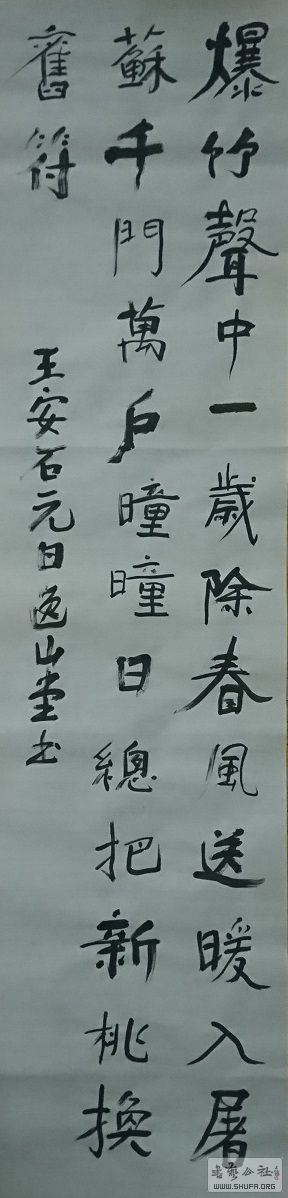 爆竹聲中一歲除春風送暖入屠
蘇千門萬戶曈曈日總把新桃換
舊符
王安石元日逸山堂书
書藝公社
WWW.SHUFA.ORG